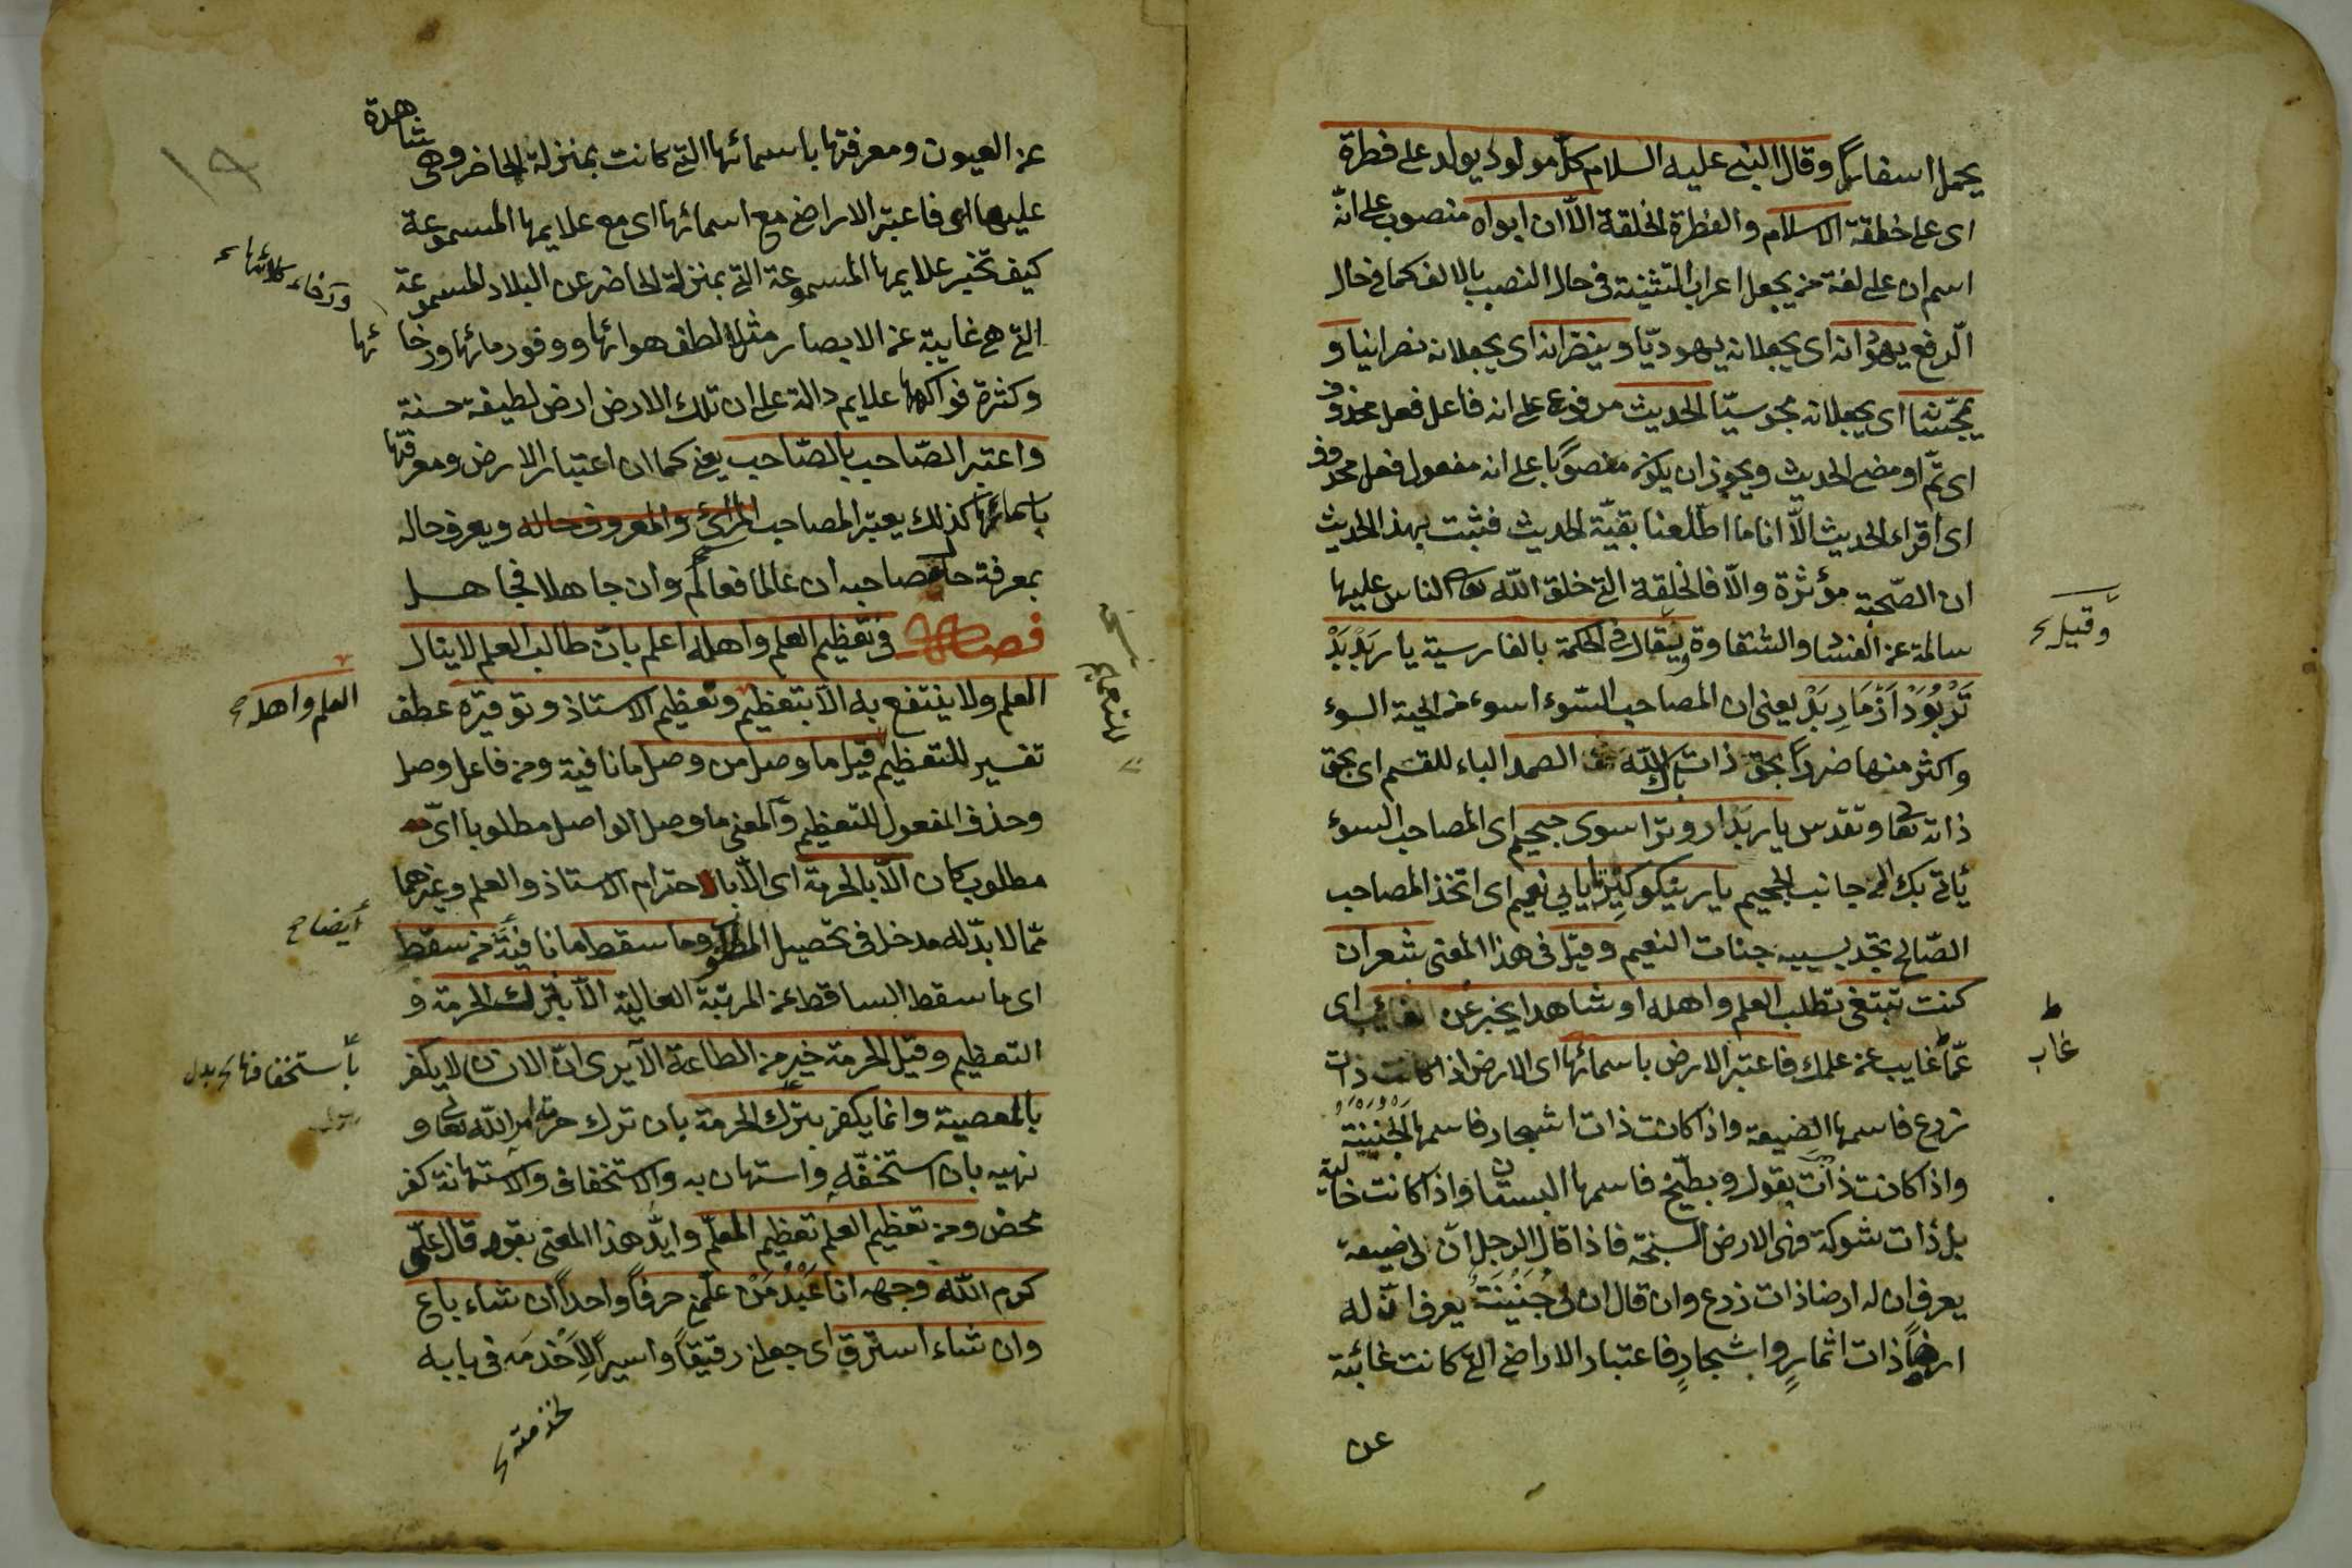 يحمل اسفارا وقال النبى عليه السلام كل مولود يولد على فطرة
اى على خلقة الاسلام والفطرة الخلقة الّا ان ابواه منصوب على انّه
اسم ان على لغة من يجعل اعراب التثنية فى حال النصب بالالف كما فى حال
الرفع يهوّدانه اى يجعلانه يهوديّا وينصّرانه اى يجعلانه نصرانيا و
يمجّسانه اى يجعلانه مجوسيّا الحديث مرفوع على انه فاعل فعل محذوف
اى تمّ او مضى الحديث ويجوز ان يكون منصوبًا على انه مفعول فعل محذوف
اى اقراء الحديث الّا انا ما اطّلعنا بقيّة الحديث فثبت بهذا الحديث
ان الصّحبة مؤثرة والّا فالخلقة التى خلق الله تعالى الناس عليها
سالمة عن الفساد والشقاوة ويقال فى الحكمة بالفارسية يار بَدْ بَدْ
وقيل
تَرْ بُوَدْ اَزْ مَارِ بَدْ يعنى ان المصاحب السّوء اسوء من الحية السوء
واكثر منها ضررا بحق ذات پاك الله الصمد الباء للقسم اى بحق
ذاته تعالى وتقدس يار بد ارد ترا سوى جحيم اى المصاحب السوء
يأتى بك الى جانب الجحيم يار نيكو كير تا يابى نعيم اى اتخذ المصاحب
الصّالح تجد بسببه جنات النعيم وقيل فى هذا المعنى شعر ان
كنت تبتغى تطلب العلم واهله او شاهدا يخبر عن الغائب اى
عمّا غايب عن علمك فاعتبر الارض باسمائها اى الارض اذا كانت ذات
غاب
زرع فاسمها الضيعة واذا كانت ذات اشجار فاسمها الجنينة
واذا كانت ذات بقول وبطّيخ فاسمها البستان واذا كانت خالية
بل ذات شوكة فهى الارض السبخة فاذا قال الرجل انّ لى ضيعة
يعرف ان له ارضا ذات زرع وان قال ان لى جنينة يعرف انّ له
ارضًا ذات اثمارٍ واشجارٍ فاعتبار الاراضى التى كانت غائبة
عن
عن العيون ومعرفتها باسمائها التى كانت بمنزلة الحاضر وهى شاهدة
عليها اى فاعتبر الاراضى مع اسمائها اى مع علايمها المسموعة
كيف تخبر علايمها المسموعة التى بمنزلة الحاضر عن البلاد المسموعة
التى هى غايبة عن الابصار مثل لطف هوائها ووفور مائها ورخائها
وكثرة فواكهها علايم دالة على ان تلك الارض ارض لطيفة حسنة
واعتبر الصّاحب بالصّاحب يعنى كما ان اعتبار الارض ومعرفتها
باسمائها كذلك يعتبر المصاحب المرئى والمعروف حاله ويعرف حاله
بمعرفة حال صاحبه ان عالما فعالم وان جاهلا فجاهل
فصل فى تعظيم العلم واهله اعلم بانّ طالب العلم لا ينال
العلم ولا ينتفع به الّا بتعظيم وتعظيم الاستاذ وتوقيره عطف
العلم واهله
تفسير للتعظيم قيل ما وصل من وصل ما نافية ومن فاعل وصل
وحذف المفعول للتعظيم والمعنى ما وصل الواصل مطلوبا اىّ
مطلوب كان الّا بالحرمة اى الّا بالاحترام الاستاذ والعلم وغيرهما
ممّا لا بدّ له مدخل فى تحصيل المطلوب وما سقط ما نافية من سقط
ايضا
اى ما سقط الساقط عن المرتبة العالية الّا بترك الحرمة و
التعظيم وقيل الحرمة خير من الطاعة الا يرى انّ الانسان لا يكفر
باستخفافها بدل
بالمعصية وانما يكفر بترك الحرمة بان ترك حرمة امر الله تعالى و
نهيه بان استخفّه واستهان به والاستخفاف والاستهانة كفر
محض ومن تعظيم العلم تعظيم المعلّم وايّد هذا المعنى بقوله قال علىّ
كرم الله وجهه انا عَبْدُ مَنْ علّمنى حرفًا واحدًا ان شاء باع
وان شاء استرق اى جعلنى رقيقًا واسيرًا لِاَخْدمَه فى بابه
لخدمته